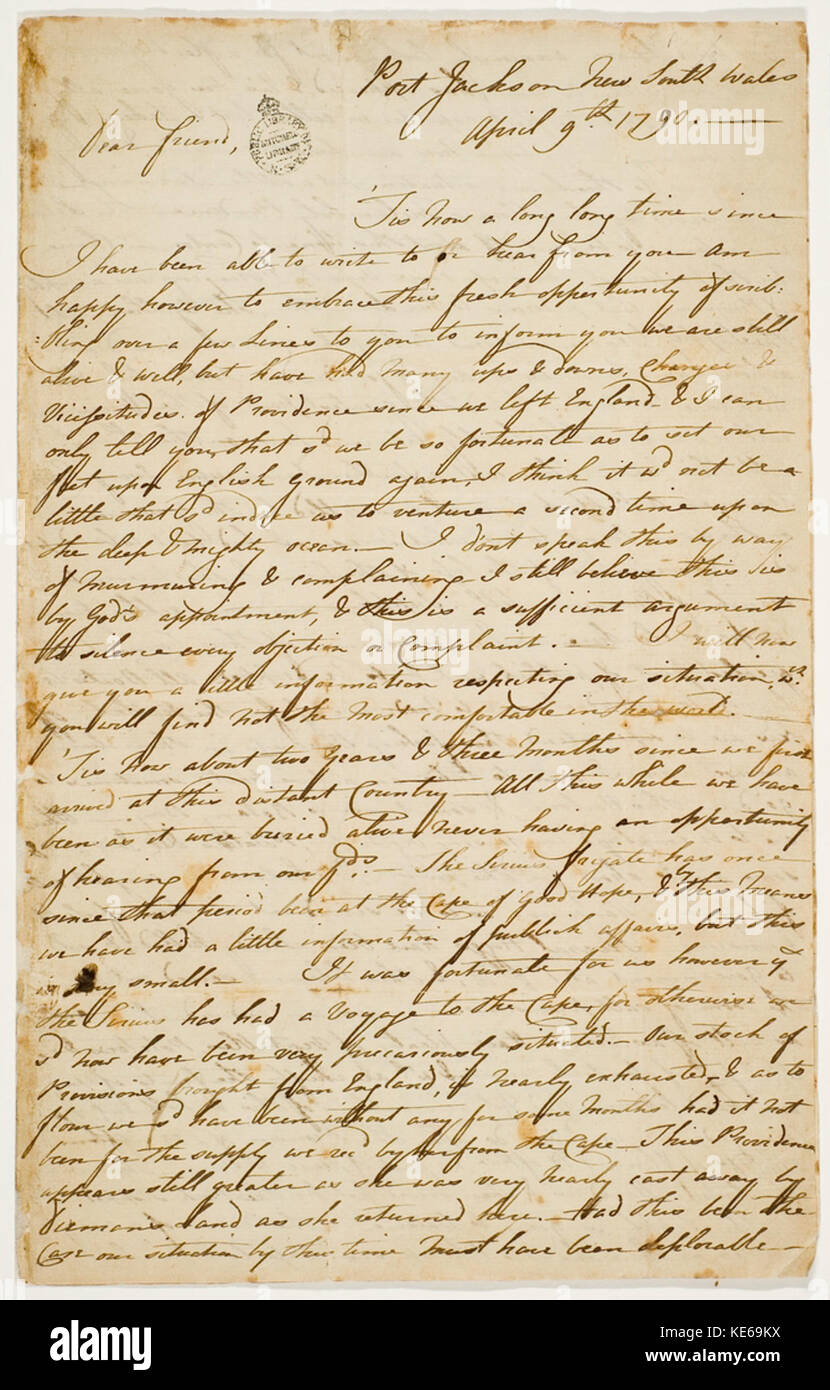 Port Jackson New South Wales
April 9.th 1790.
Dear friend,
PUBLIC LIBRARY
MITCHELL
LIBRARY
'Tis now a long long time since
I have been able to write to or hear from you Am
happy however to embrace this fresh opportunity of scrib:
:bling over a few Lines to you to inform you we are still
alive & well, but have had many ups & downs, Changes &
Vicissitudes of Providence since we left England & I can
only tell you, that sd we be so fortunate as to set our
feet upon English ground again, I think it wd not be a
little that sd induce us to venture a second time upon
the deep & mighty ocean.— I don't speak this by way
of Murmuring & complaining I still believe this is
by God's appointment, & this is a sufficient argument
to silence every objection or Complaint.— I will now
give you a little information respecting our situation, wh.
you will find not the most comfortable in the world.—
'Tis now about two years & three Months since we first
arrived at this distant Country All this while we have
been as it were buried alive never having an opportunity
of hearing from our fds.— The Sirius frigate has once
since that period been at the Cape of Good Hope, & by this Means
we have had a little information of publick affairs, but this
is very small.— It was fortunate for us however yt
the Sirius has had a Voyage to the Cape, for otherwise we
sd now have been very precariously situated.— Our stock of
Provisions brought from England, is nearly exhausted, & as to
flour we sd have been without any for some Months had it not
been for the supply we recd by her from the Cape. This Providence
appears still greater as she was very nearly cast away by
Diemans Land as she returned here.— Had this been the
Case our situation by this time must have been deplorable—
alamy
a
alamy
Image ID: KE69KX
www.alamy.com